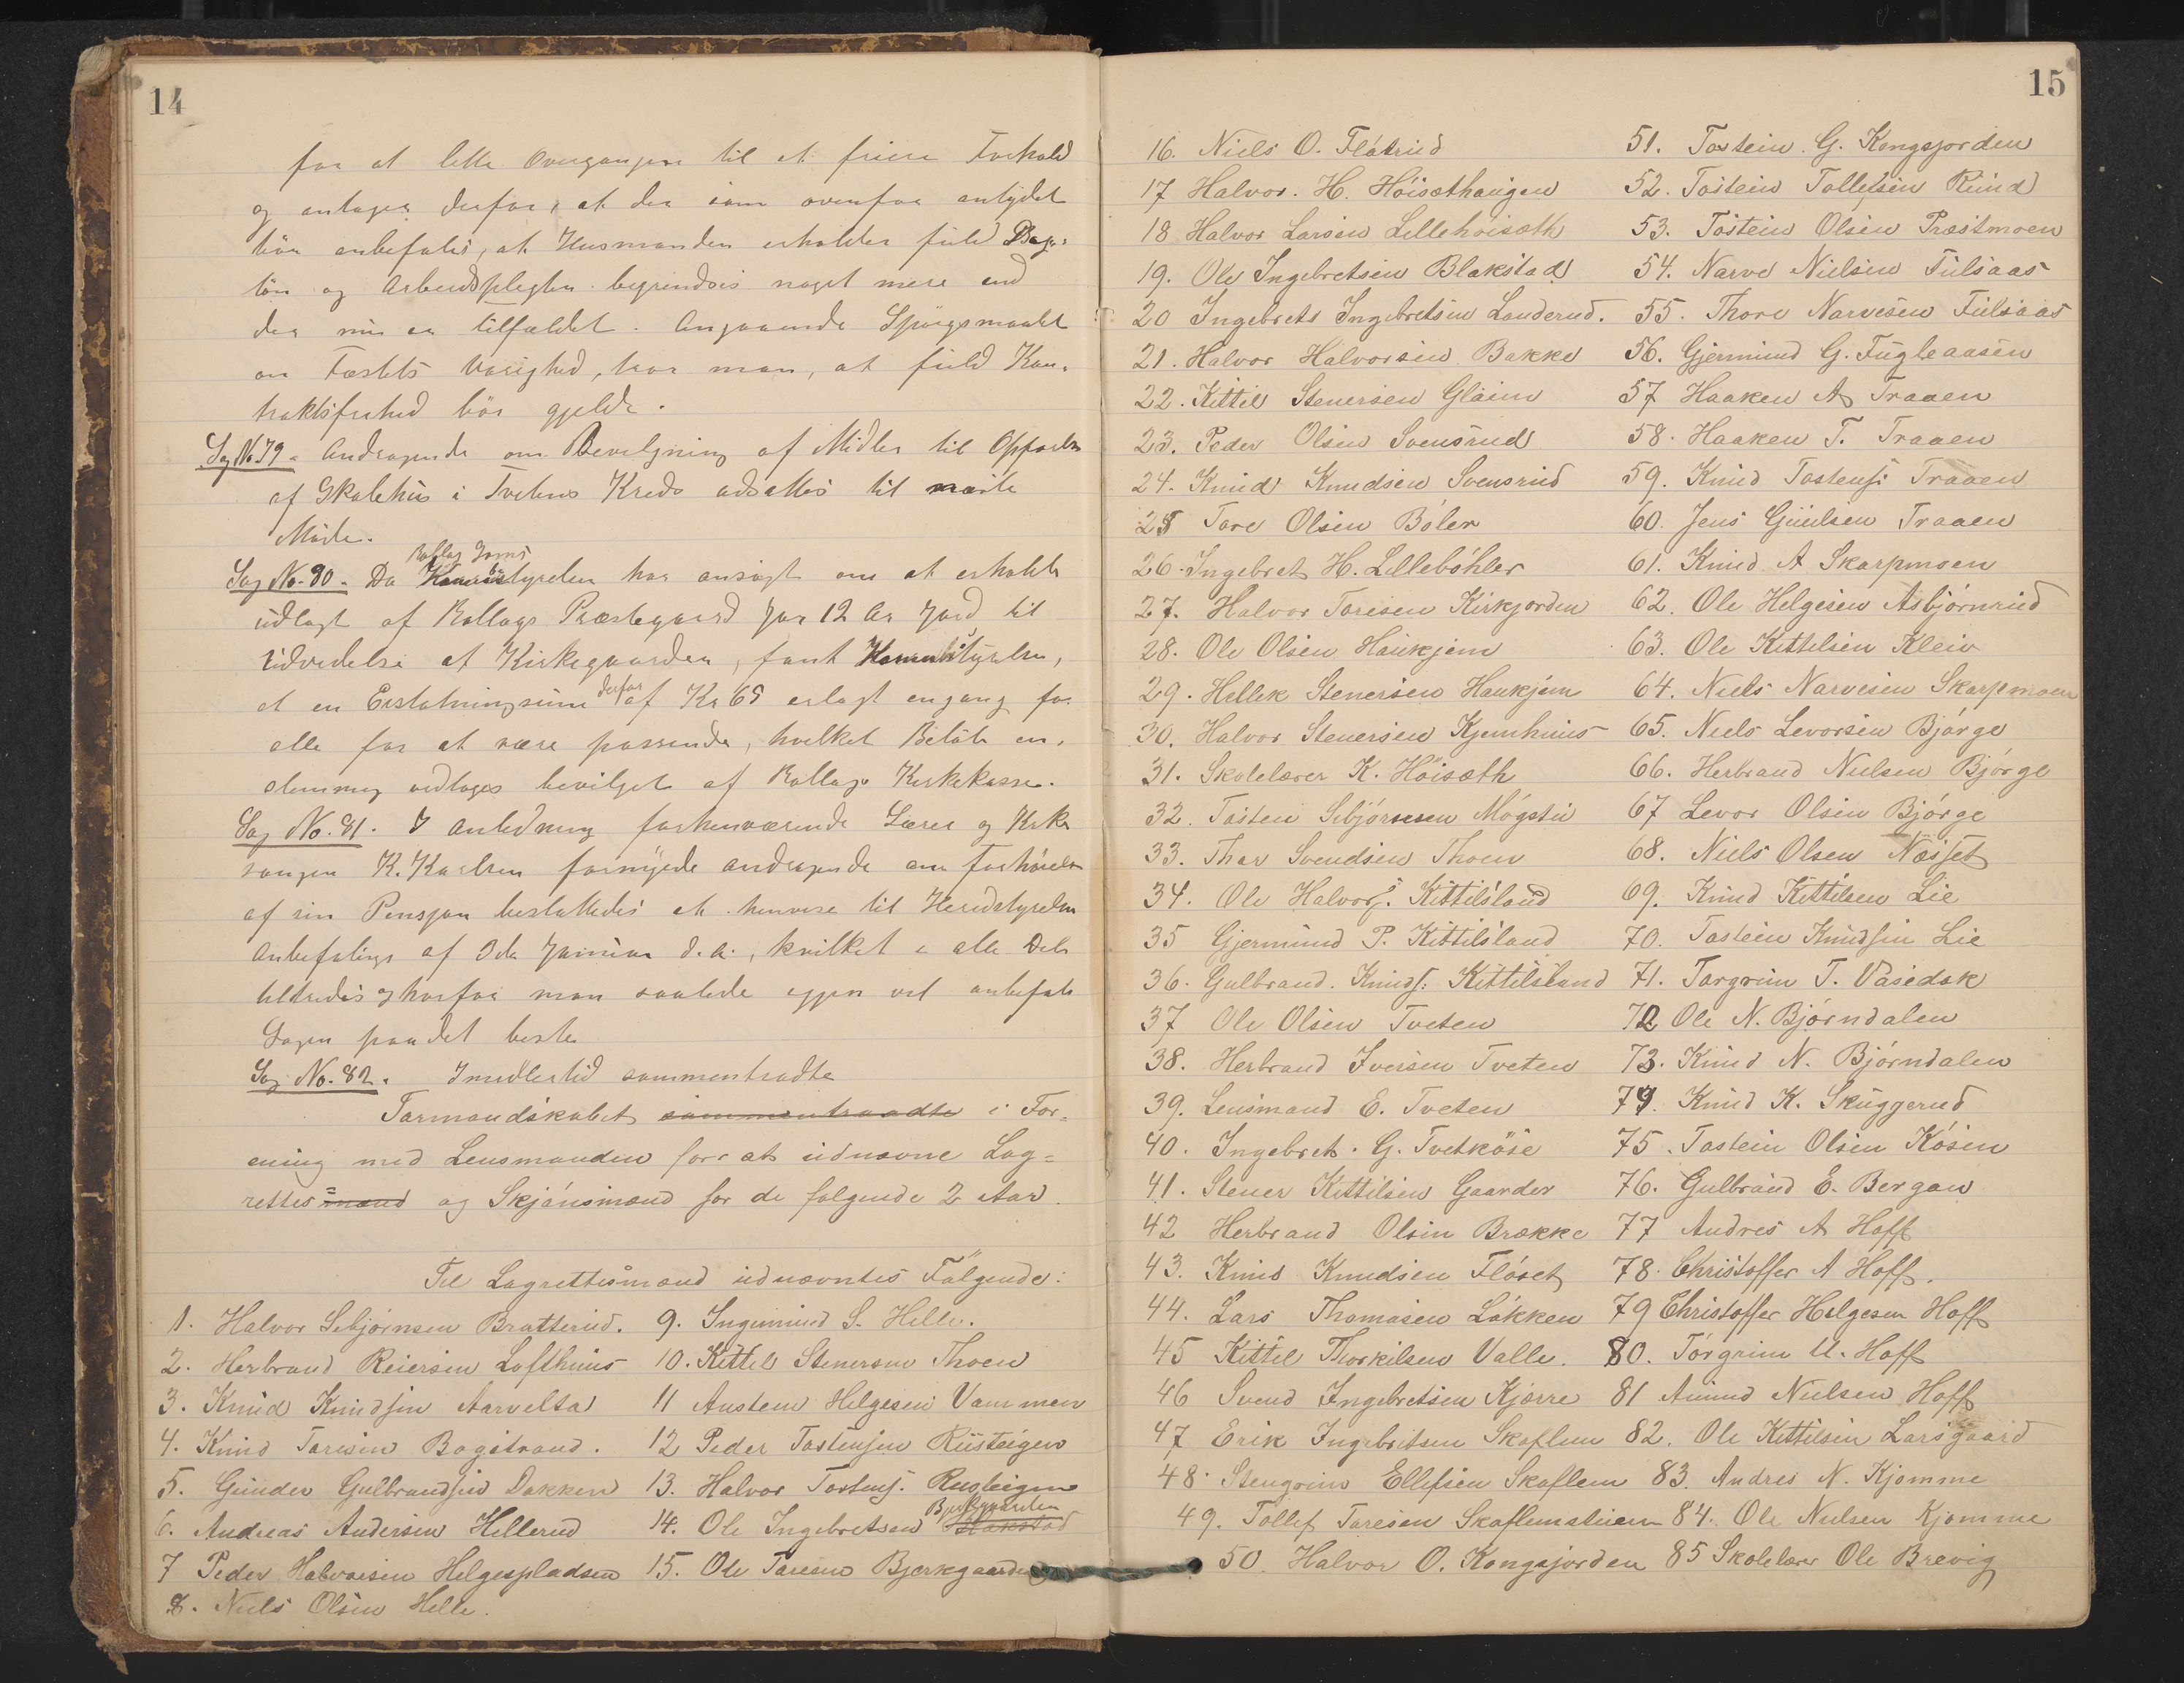 14
for at lette Overgangen til et friere Forhold
og antages derfor, at der som ovenfor antydet
bör anbefales, at Husmanden erholder fuld Dag-
lön og Arbeidspligten begrændses noget mere end
der nu er tilfældet. Angaaende Spörgsmaalet
om Fæstets Varighed, tror man, at fuld Kon-
traktsfrihed bör gjelde.
Sag No 79. Andragende om Bevilgning af Midler til Opförelse
af Skolehus i Tvetens Kreds udsattes til næste
Möde.
Sag No. 80. Da Rollag Sogns Kommunebestyrelse har ansögt om at erholde
udlagt af Rollags Præstegaard Jor 12 Ar Jord til
Udvidelse af Kirkegaarden, fant Herredsstyrelsen,
at en Erstatningssum derfor af Kr 65 erlagt engang for
alle for at være passende, hvilket Belöb en-
stemmig vedtoges bevilget af Rollags Kirkekasse.
Sag No. 81. I Anledning forhenværende Lærer og Kirke
sanger K. Karlsen fornyede andragende om Forhöielse
af sin Pensjon besluttedes at henvise til Herredstyrelsens
Anbefalings af 3die Januar d.a., hvilket i alle Dele
tiltrædes og hvorfor man saaledes igjen vil anbefale
Sagen paa det beste
Sag No. 82. Imidlertid sammentradte
Formandskabet sammentraadte i For-
ening med Lensmanden for at udnævne Lag-
rettes=mænd og Skjönsmænd for de fölgende 2 Aar.
Til Lagrettesmænd udnævntes Fölgende:
1. Halvor Sebjörnsen Bratterud.
2. Herbrand Reiersen Lofthuus
3. Knud Knudsen Aarvelta
4. Knud Toresen Bogstrand.
5. Gunder Gulbrandsen Dokken
6. Andreas Andersen Hellerud
7 Peder Halvorsen Helgespladsen
8. Niels Olsen Helle.
9. Ingemund S. Helle.
10. Kittel Stenersen Thoen
11 Austen Helgesen Vammen
12 Peder Tostensen Rusteigen
13. Halvor Tostens. Rusteigen
14. Ole Ingebretsen Blakstad Bjerkgaarden
15. Ole Toresen Bjerkgaarden
15
16. Niels O. Flåtrud
17 Halvor. H. Höisæthaugen
18 Halvor Larsen Lillehöisæth
19. Ole Ingebretsen Blakstad
20 Ingebret Ingebretsen Landerud.
21. Halvor Halvorsen Bakke
22. Kittil Stenersen Glaim
23. Peder Olsen Svensrud
24. Knud Knudsen Svensrud
25 Tore Olsen Böler
26. Ingebret H. Lilleböhler
27. Halvor Toresen Kirkjorden
28. Ole Olsen Haukjem
29. Hellek Stenersen Haukjem
30. Halvor Stenersen Kjemhuus
31. Skolelærer K. Höisæth
32. Tosten Sebjörnsen Mögstu
33. Thor Svendsen Thoen
34. Ole Halvors. Kittilsland
35 Gjermund P. Kittilsland
36. Gulbrand. Knuds. Kittilsland
37 Ole Olsen Tveten
38. Herbrand Iversen Tveten
39. Lensmand E. Tveten
40. Ingebret. G. Tvetköse
41. Stener Kittilsen Gaarder
42 Herbrand Olsen Brække
43. Knud Knudsen Flöset
44. Lars Thomasen Løkken
45 Kittil Thorkilsen Valle.
46 Svend Ingebretsen Kjærre
47 Erik Ingebritsen Skaflem
48. Stengrim Ellefsen Skaflem
49. Tollef Toresen Skaflemstuen
50. Halvor O. Kongsjorden
51. Tostein. G. Kongsjorden
52. Tostein Tollefsen Rund
53. Tostein Olsen Præstmoen
54. Narve Nielsen Fulsaas
55. Thore Narvesen Fulsaas
56. Gjermund G. Fugleaasen
57 Haaken A Traaen
58. Haaken T. Traaen
59. Knud Tostens: Traaen
60. Jens Guulsen Traaen
61. Knud A Skarpmoen
62. Ole Helgesen Asbjörnrud
63. Ole Kittilsen Kleiv
64. Niels Narvesen Skarpmoen
65. Niels Levorsen Bjørge
66. Herbrand Nielsen Bjørge
67 Levor Olsen Bjørge
68. Niels Olsen Næsset
69. Knud Kittilsen Lie
70. Tostein Knudsen Lie
71. Torgrim T. Våsedok
72 Ole N. Bjørndalen
73. Knud N. Bjørndalen
74. Knud K. Skuggerud
75. Tostein Olsen Kåsin
76. Gulbrand E. Bergan
77 Andres A Hoff
78. Christoffer A Hoff.
79 Christoffer Helgesen Hoff
80. Torgrim U. Hoff
81 Amund Nielsen Hoff
82. Ole Kittilsen Larsgaard
83. Andres N. Kjomme
84. Ole Nielsen Kjomme
85 Skolelærer Ole Brevig